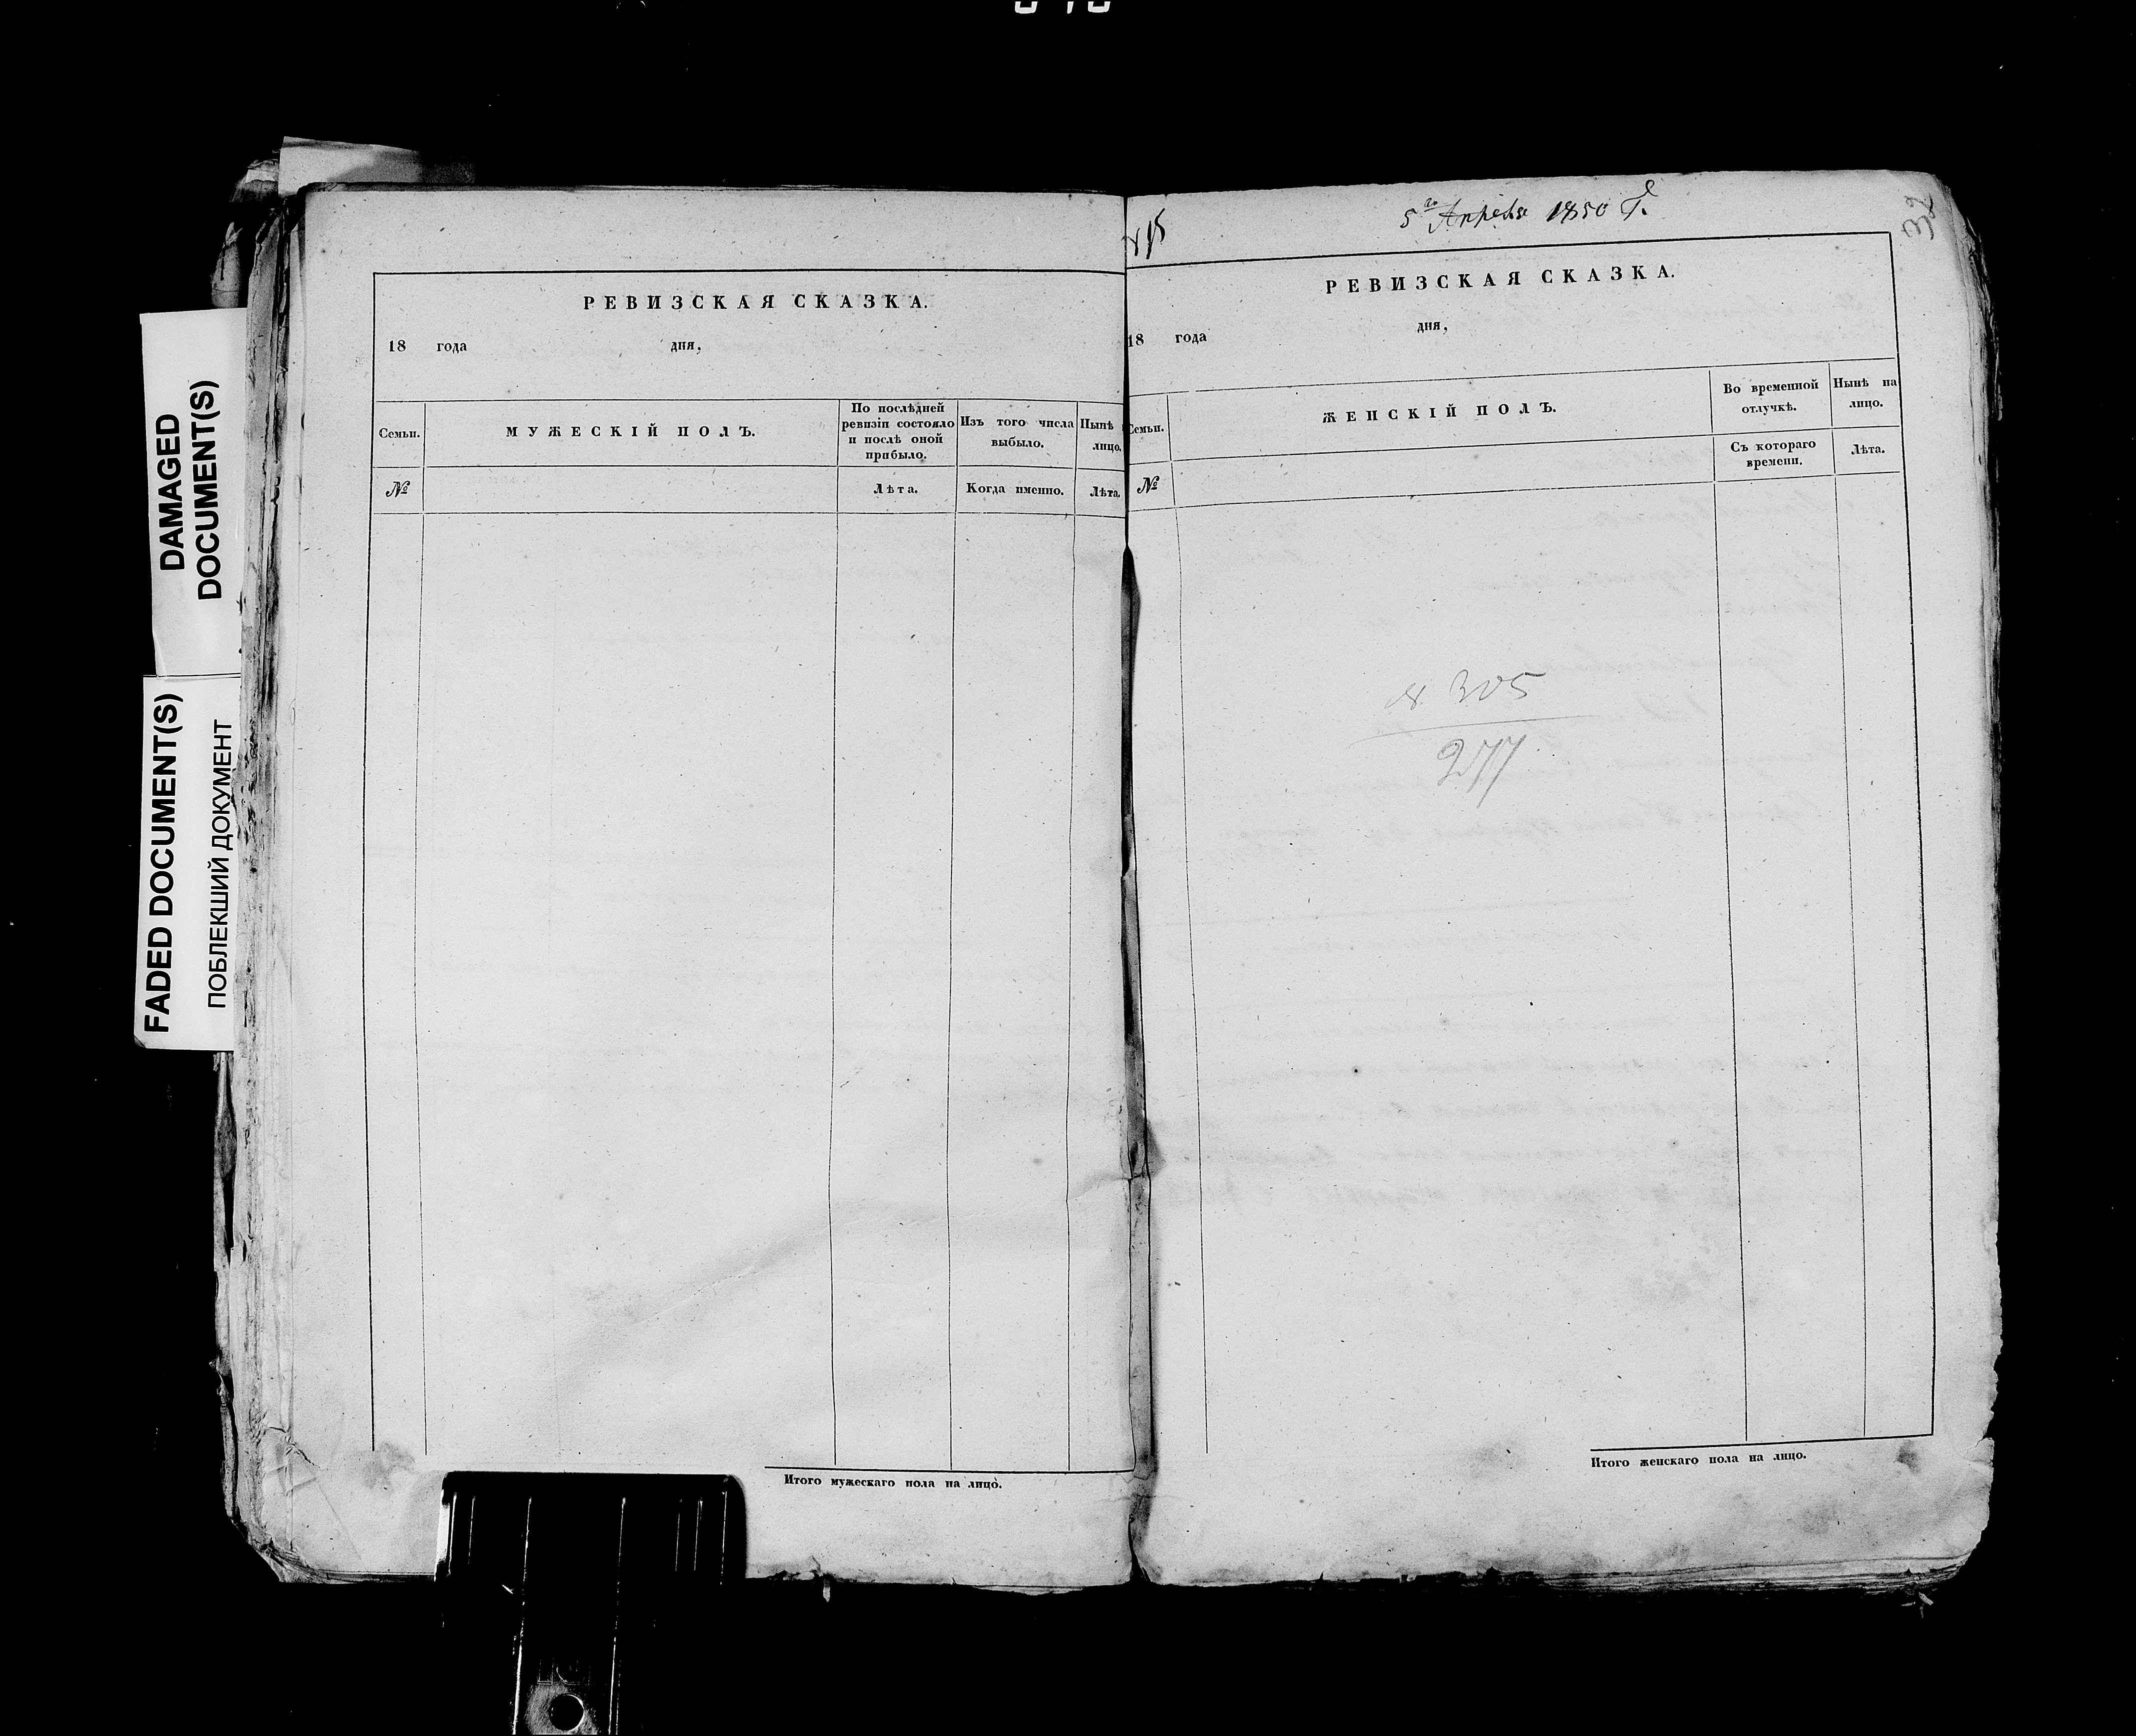 DAMAGED
DOCUMENT(S)
FADED DOCUMENT(S)
ПОБЛЕКШИЙ ДОКУМЕНТ
РЕВИЗСКАЯ СКАЗКА.
18 года дня,
Семьи.
МУЖЕСКІЙ ПОЛЪ.
По послѣдней
ревизіи состояло
и послѣ оной
прибыло.
Изъ того числа
выбыло.
Нынѣ
лицо.
№
Лѣта.
Когда именно.
Лѣта
Итого мужескаго пола на лицо.
5го Апреля 1850 Г.
32
РЕВИЗСКАЯ СКАЗКА.
18 года дня,
Семьи.
ЖЕНСКІЙ ПОЛЪ.
Во временной
отлучкѣ.
Нынѣ на
лицо.
№
Съ котораго
времени.
Лѣта.
305
277
Итого женскаго пола на лицо.